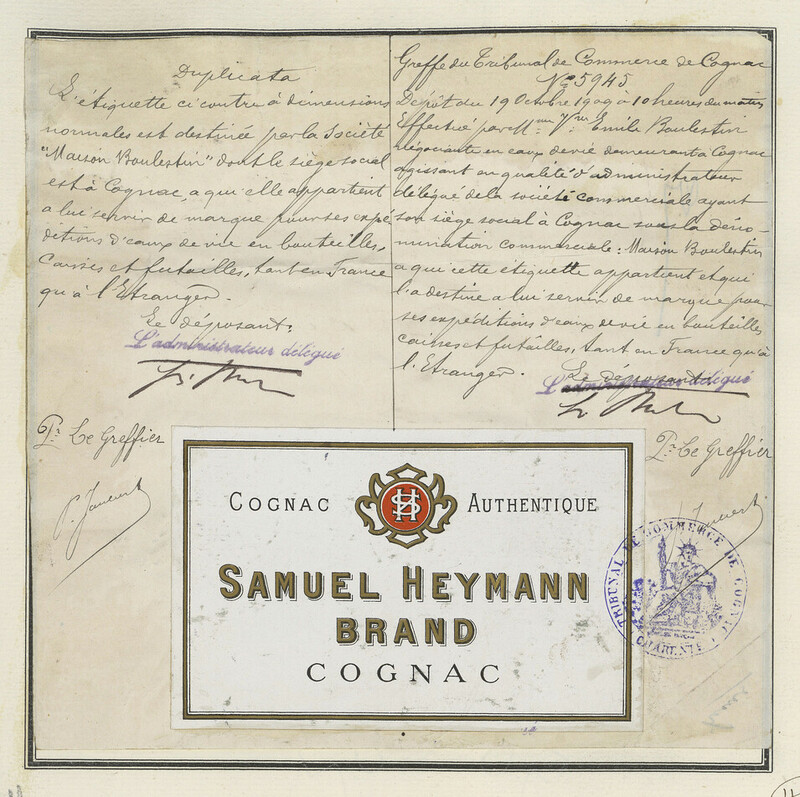 Duplicata
L'étiquette ci contre à dimensions
normales est destinée par la Société
"Maison Boulestin" dont le siège social
est à Cognac, a qui elle appartient
a lui servir de marque pour ses expé
ditions d'eaux de vie en bouteilles,
caisses et futailles, tant en France
qu'à l'Etranger.
Le déposant.
L'administrateur délégué
Pr Le Greffier
Greffe du Tribunal de Commerce de Cognac
No 5945
Dépôt du 19 Octobre 1909 à 10 heures du matin
Effectué par Emile Boulestin
négociante en eaux de vie demeurant à Cognac
agissant en qualité d'administrateur
délégué de la société commerciale ayant
son siège social à Cognac sous la déno-
mination commerciale: Maison Boulestin
a qui cette étiquette appartient et qui
l'a destine a lui servir de marque pour
ses expéditions d'eaux de vie en bouteilles
caisses et futailles, tant en France qu'à
l'Etranger. Le déposant
L'administrateur délégué
Pr Le Greffier
COGNAC AUTHENTIQUE
SH
SAMUEL HEYMANN
BRAND
COGNAC
TRIBUNAL DE COMMERCE DE COGNAC
CHARENTE